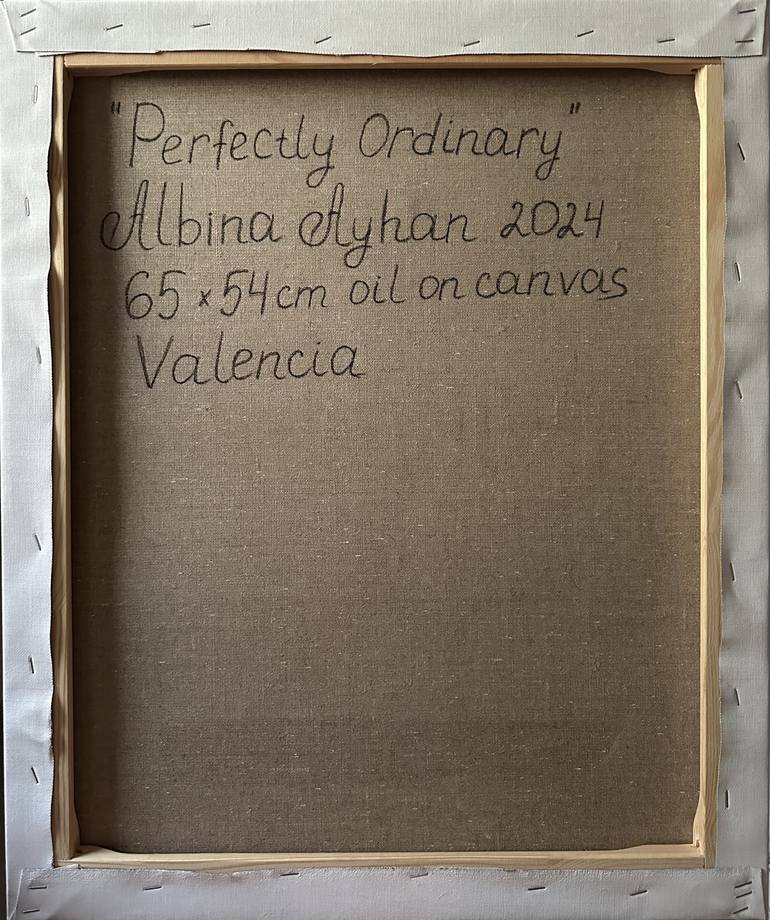 "Perfectly Ordinary"
Albina Ayhan 2024
65 x 54 cm oil on canvas
Valencia